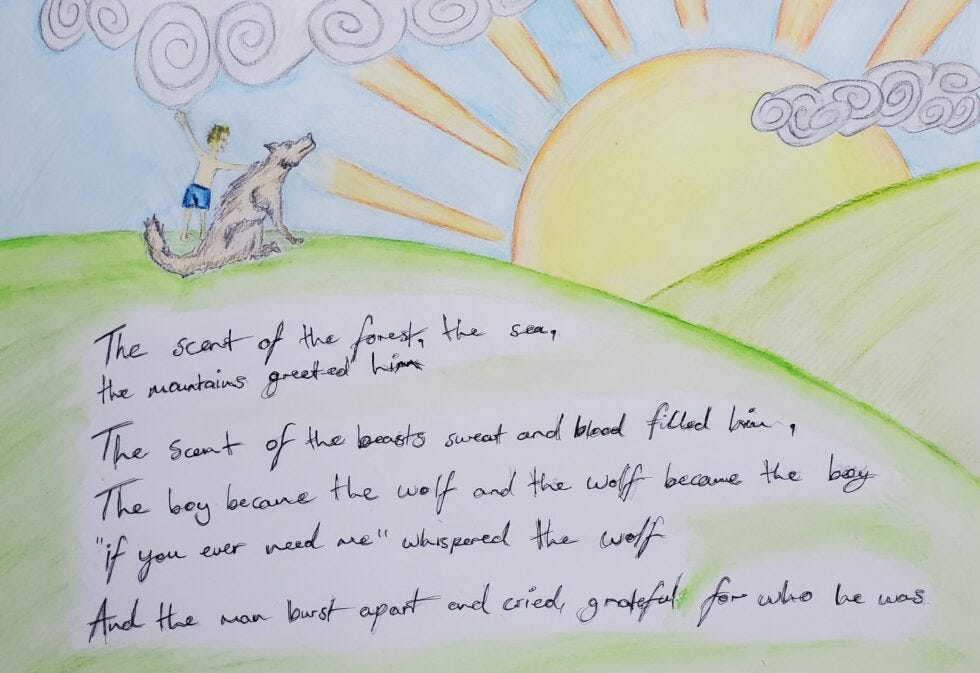 The scent of the forest, the sea,
the mountains greeted him
The scent of the beasts sweat and blood filled him,
The boy became the wolf and the wolf became the boy
"if you ever need me" whispered the wolf
And the man burst apart and cried, grateful for who he was